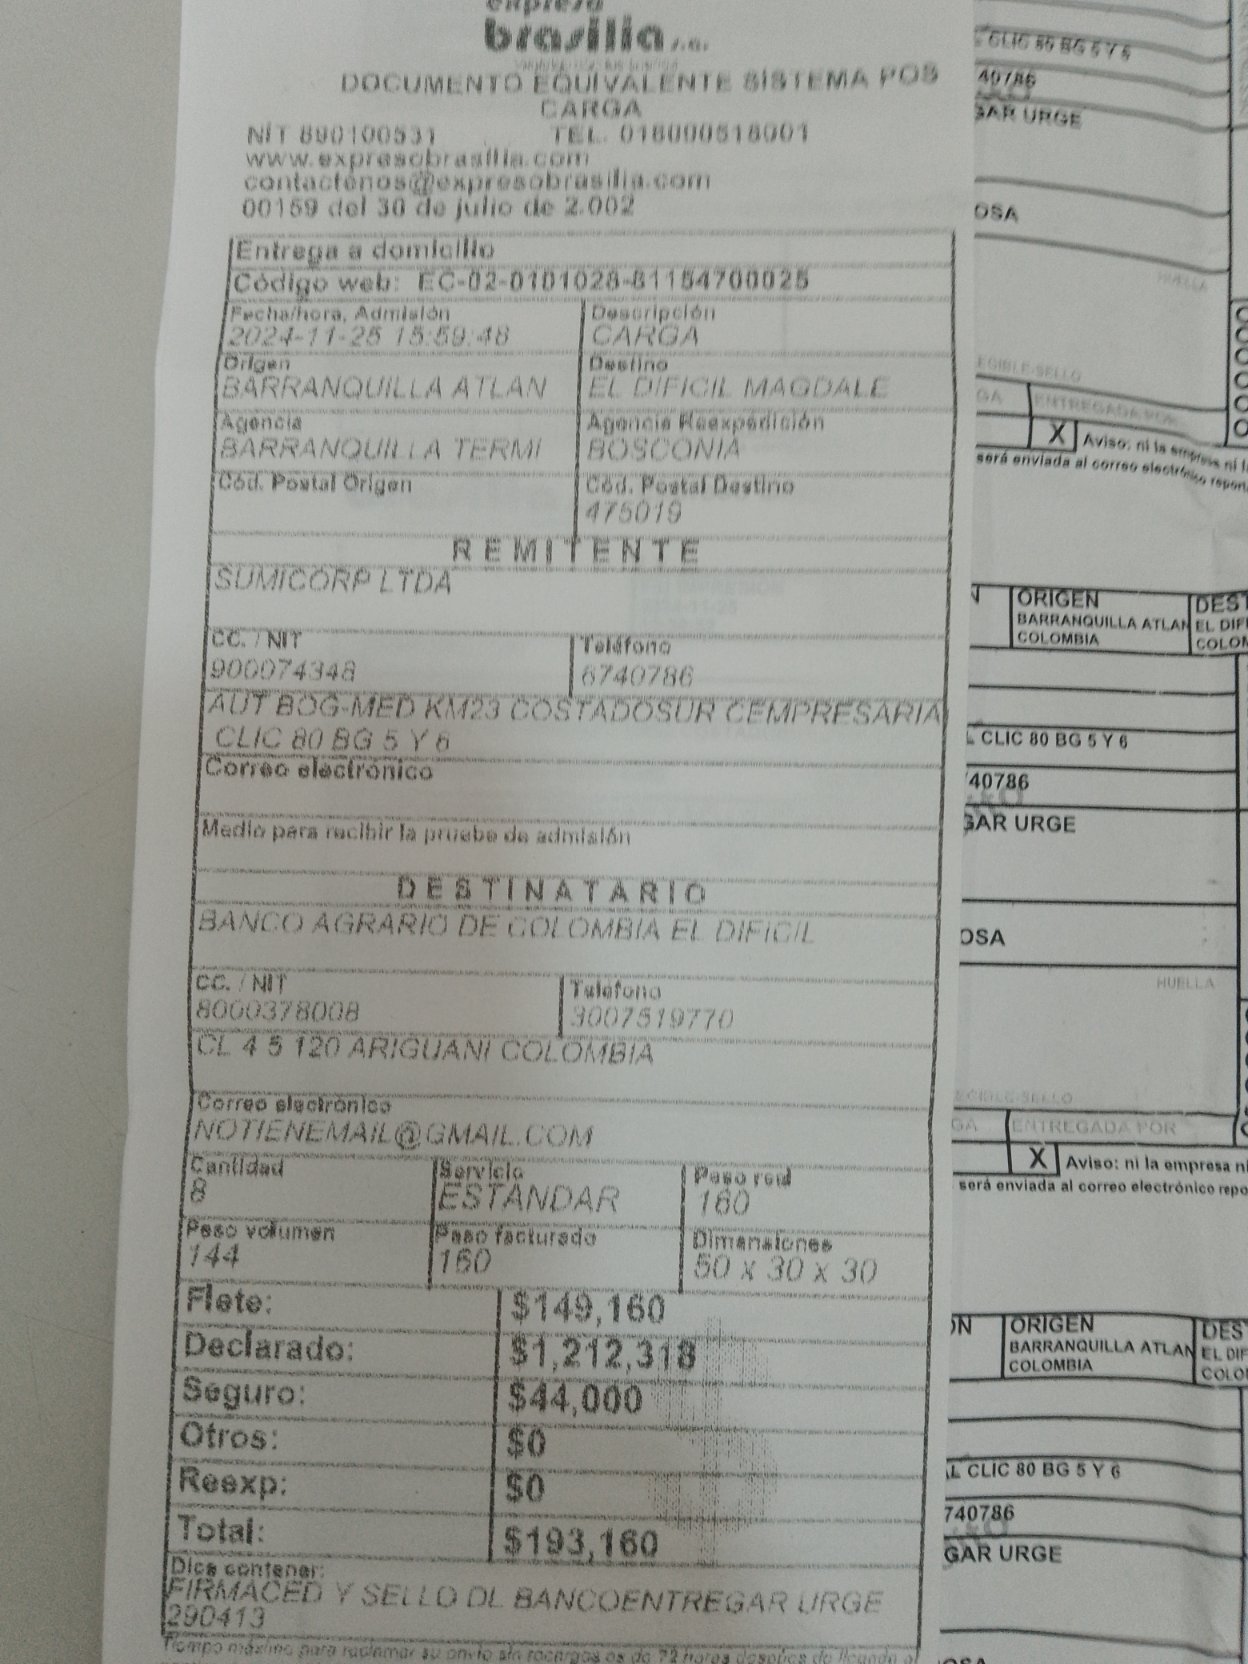 expreso
brasilia s.a.
DOCUMENTO EQUIVALENTE SISTEMA POS
CARGA
NIT 890100531 TEL. 018000518001
www.expresobrasilia.com
contactenos@expresobrasilia.com
00159 del 30 de julio de 2.002
Entrega a domicilio
Código web: EC-02-0101028-81154700025
Fecha/hora, Admisión Descripción
2024-11-25 15:59:48 CARGA
Origen Destino
BARRANQUILLA ATLAN EL DIFICIL MAGDALE
Agencia Agencia Reexpedición
BARRANQUILLA TERMI BOSCONIA
Cód. Postal Origen Cód. Postal Destino
475019
REMITENTE
SUMICORP LTDA
CC. / NIT Teléfono
900074348 6740786
AUT BOG-MED KM23 COSTADOSUR CEMPRESARIA
CLIC 80 BG 5 Y 6
Correo electrónico
Medio para recibir la prueba de admisión
DESTINATARIO
BANCO AGRARIO DE COLOMBIA EL DIFICIL
CC. / NIT Teléfono
8000378008 3007519770
CL 4 5 120 ARIGUANI COLOMBIA
Correo electrónico
NOTIENEMAIL@GMAIL.COM
Cantidad Servicio Peso real
8 ESTANDAR 160
Peso volumen Peso facturado Dimensiones
144 160 50 x 30 x 30
Flete: $149,160
Declarado: $1,212,318
Seguro: $44,000
Otros: $0
Reexp: $0
Total: $193,160
Dice contener:
FIRMACED Y SELLO DL BANCOENTREGAR URGE
290413
Tiempo máximo para reclamar su envío sin recargos es de 72 horas después de llegado al
CLIC 80 BG 5 Y 6
40786
GAR URGE
OSA
HUELLA
EGIBLE-SELLO
GA ENTREGADA POR
X Aviso: ni la empresa ni l
será enviada al correo electrónico report
ORIGEN DEST
BARRANQUILLA ATLAN EL DIF
COLOMBIA COLOM
L CLIC 80 BG 5 Y 6
740786
GAR URGE
OSA
HUELLA
EGIBLE-SELLO
GA ENTREGADA POR
X Aviso: ni la empresa ni
será enviada al correo electrónico repo
ÓN ORIGEN DES
BARRANQUILLA ATLAN EL DIF
COLOMBIA COLO
AL CLIC 80 BG 5 Y 6
740786
GAR URGE
OSA